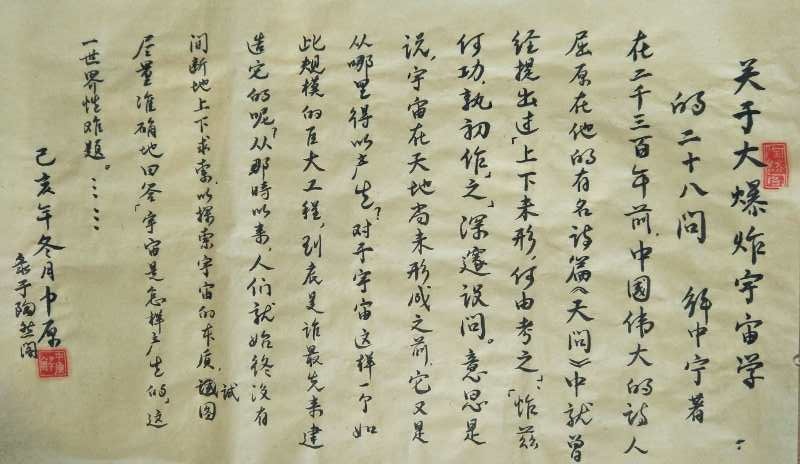 关于大爆炸宇宙学
的二十八问 中宁著
在二千三百年前,中國伟大的詩人
屈原在他的有名詩篇《天问》中就曾
经提出过「上下未形,何由考之」,「炸兹
何功,孰初作之」深邃设问。意思是
说,宇宙在天地尚未形成之前,它又是
从哪里得以产生?对于宇宙这样一个如
此规模的巨大工程,到底是谁最先来建
造完的呢?从那時以来,人们就始终没有
间断地上下求索,以探索宇宙的本质,试图
尽量准确地回答「宇宙是怎样产生的」这
一世界性难题。……
己亥年冬月中原
于陶然阁